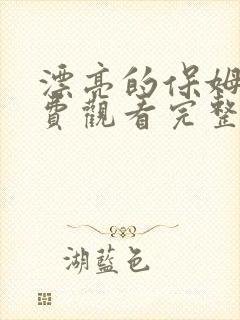 漂亮的保姆
費觀看完整
湖藍色